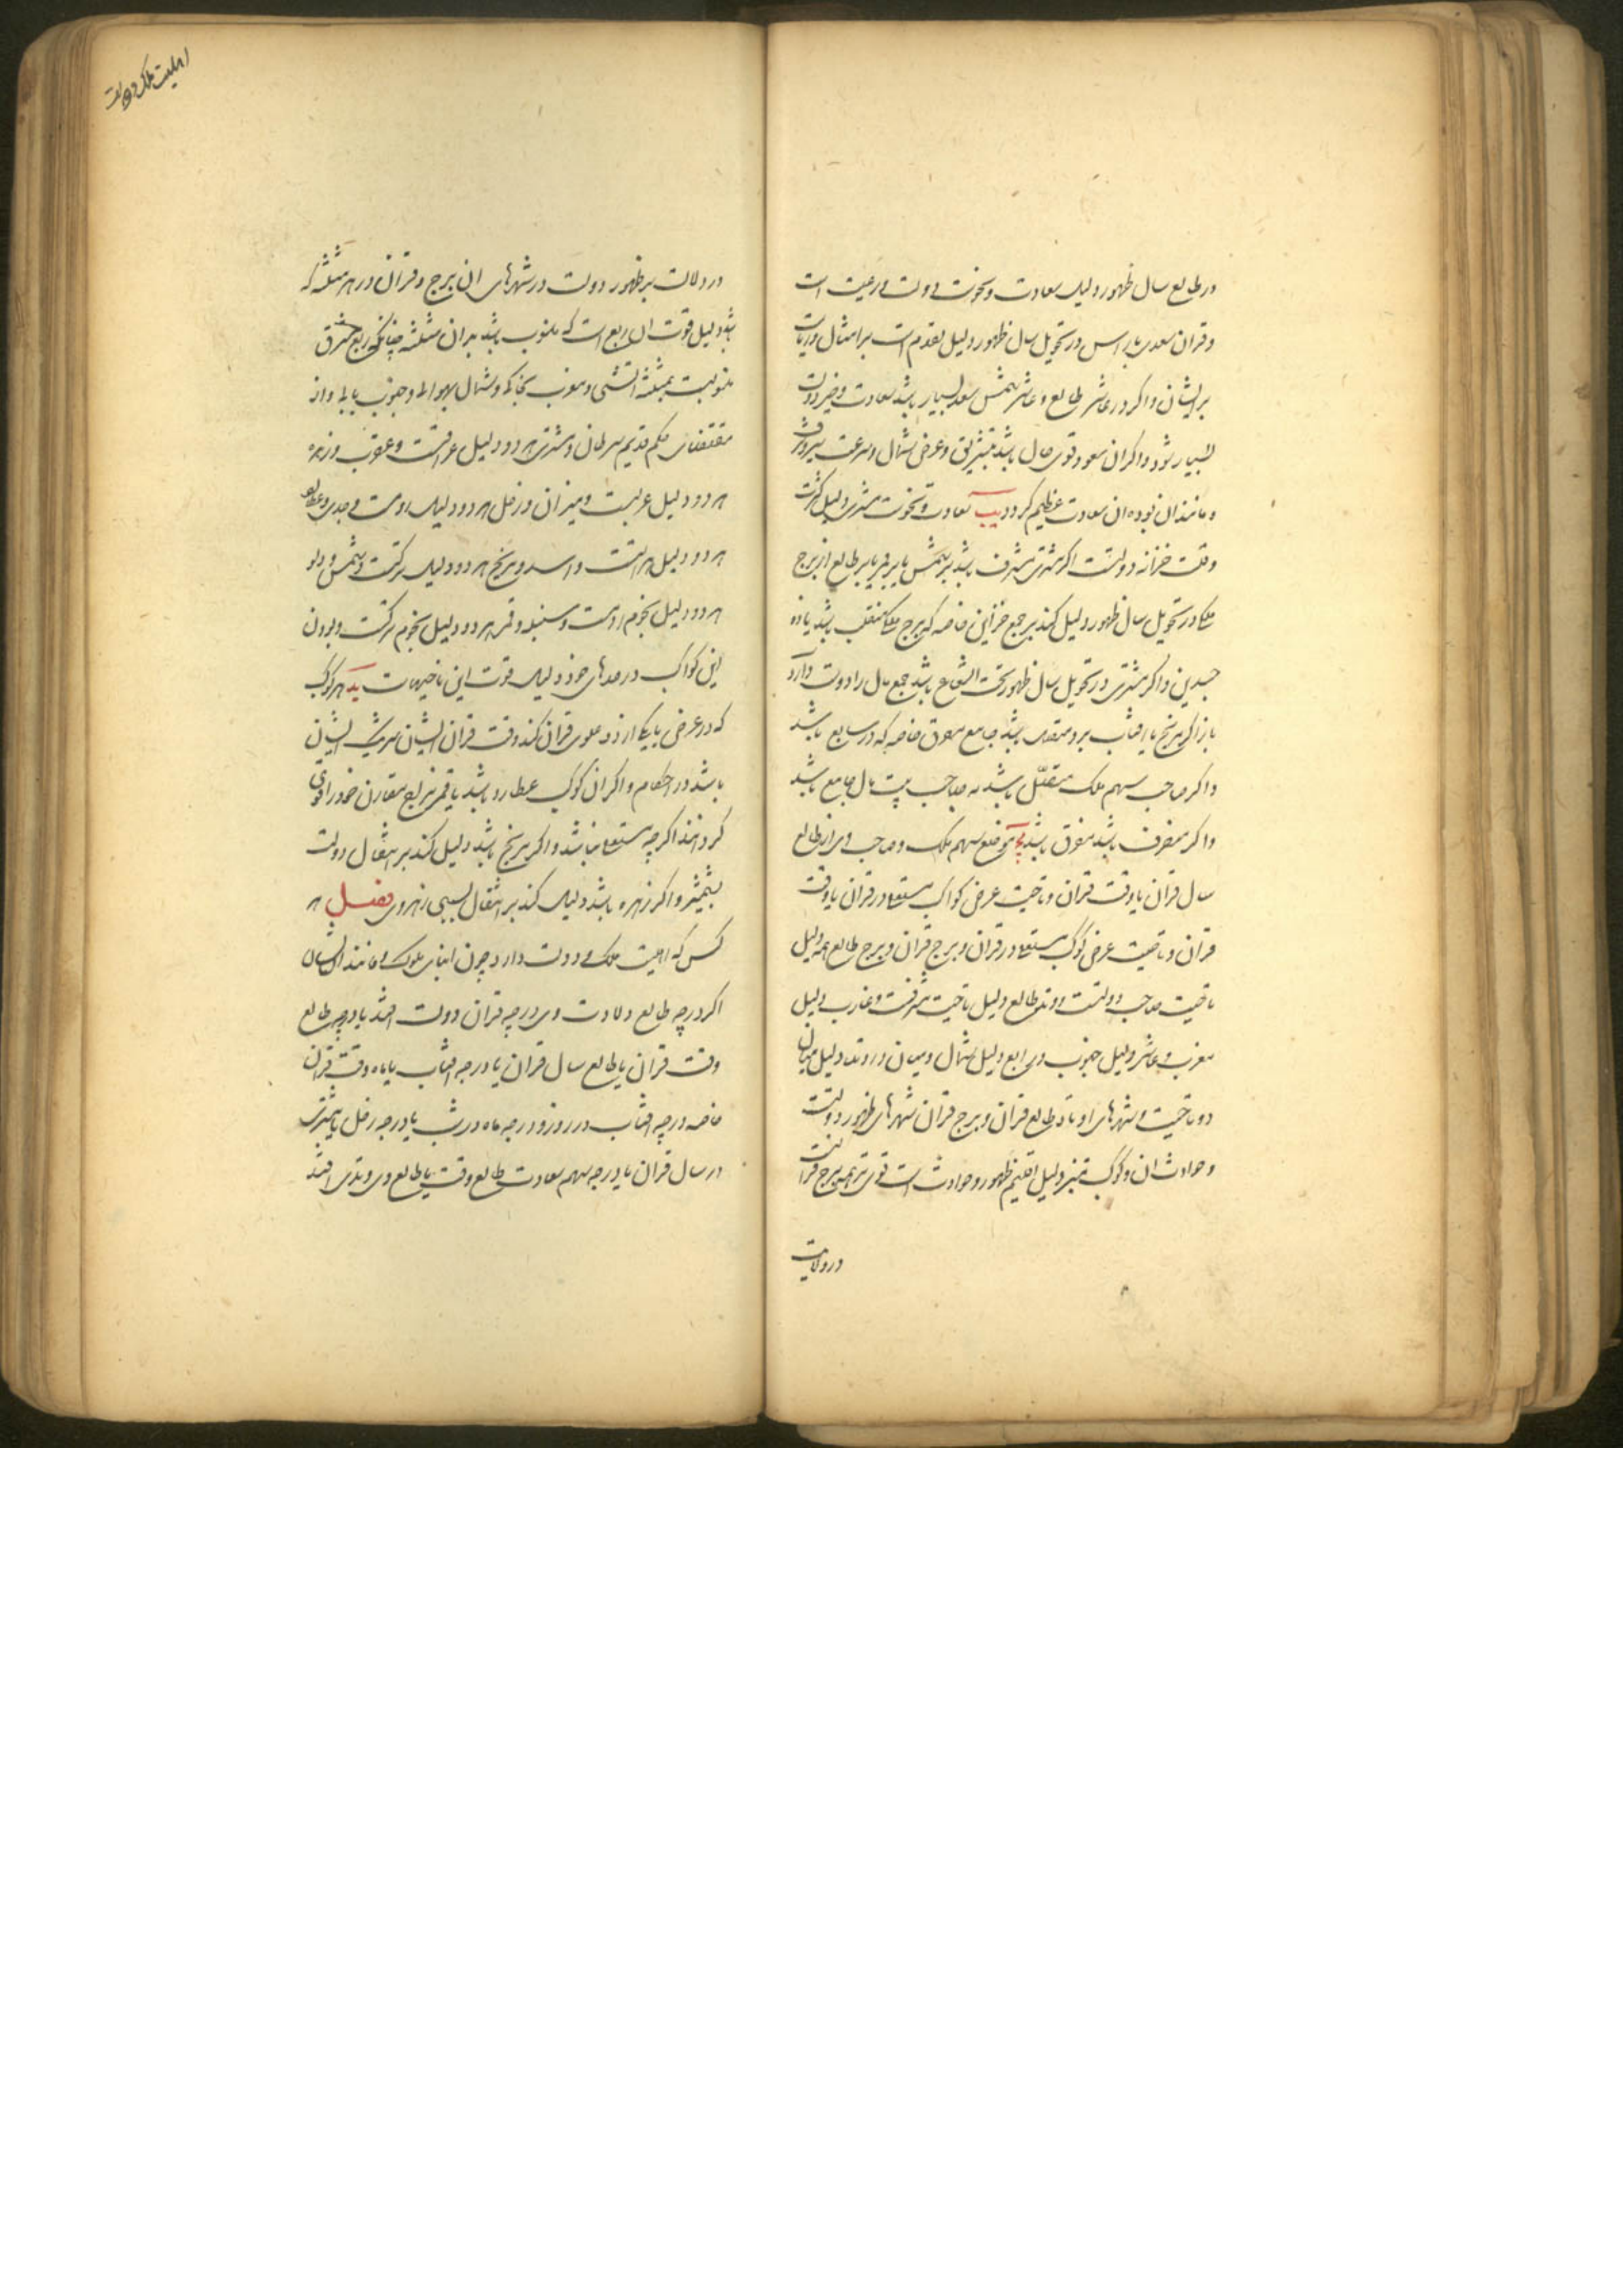 در طالع سال ظهور دلیل سعادت و نحوست دولت و رعیت است
و قران سعدی با راس در تحویل سال ظهور دلیل تقدم است بر امثال و ریاست
بر ایشان و اگر در عاشر طالع و عاشر شمس سعد بسیار باشد سعادت و خیر دولت
بسیار شود و اگر ان سعود قوی حال باشد بتشریق و عرض شمال و سرعت سیر و شرف
و مانند ان بوده ان سعادت عظیم گردد یب سعادت و نحوست مشتری دلیل کثرت
و قلت خزانه دولتست اگر مشتری مشرف باشد بر شمس یا بر قمر یا بر طالع از برج
ملک در تحویل سال ظهور دلیل کند بر جمع خزاین خاصه که برج ملک منقلب باشد یا ذو
جسدین و اگر مشتری در تحویل سال ظهور تحت الشعاع باشد جمع مال را دوست دارد
باز اگر مریخ یا افتاب برو مستولی باشد جامع مفرق خاصه که در سابع باشد
و اگر صاحب سهم ملک متقبل باشد به صاحب بیت مال جامع باشد
و اگر منصرف باشد مفرق باشد یج موضع سهم ملک و صاحب وی از طالع
سال قران یا وقت قران و ناحیت عرض کواکب مستعلی در قران یا وقت
قران و ناحیت عرض کوکب مستعلی در قران و برج قران و برج طالع همه دلیل
ناحیت صاحب دولتست و وتد طالع دلیل ناحیت شرقست و غارب دلیل
مغرب و عاشر دلیل جنوب و رابع دلیل شمال و میان دو وتد دلیل میان
دو ناحیت و شهرهای اوتاد طالع قران و برج قران شهرهای ظهور دولتست
و حوادث ان و کوکب مبتز دلیل اقلیم ظهور و حوادث است قوی تر همه برج قرانست
در دلالت
در دلالت بر ظهور دولت در شهرهای ان برج و قران در هر مثلثه که
باشد دلیل قوت ان ربع است که منسوب باشد بدان مثلثه چنانکه ربع مشرق
منسوبست بمثلثه اتشی و مغرب بخاکی و شمال بهوایی و جنوب بابی و از
مقتضای حکم قدیم سرطان و مشتری هر دو دلیل عراقست و عقرب و زهره
هر دو دلیل عربست و میزان و زحل هر دو دلیل رومست و جدی و عطارد
هر دو دلیل هندست و اسد و مریخ هر دو دلیل ترکست و شمس و دلو
هر دو دلیل نجوم رومست و سنبله و قمر هر دو دلیل نجوم ترکست و بودن
این کواکب در حدهای خود دلیل قوت این ناحیهاست ید هر کوکب
که در عرض با یکی از دو علوی قران کند وقت قران ایشان شریک ایشان
باشد در احکام و اگر ان کوکب عطارد باشد یا قمر مزاج مقارن خود را قوی
گردانند اگر چه مستعلی نباشد و اگر مریخ باشد دلیل کند بر انتقال دولت
بشمشیر و اگر زهره باشد دلیل کند بر انتقال بسببی زهروی فصل هر
کس که اهلیت ملک و دولت دارد چون ابنای ملوک و مانند ایشان
اگر درجه طالع ولادت وی درجه قران دولت افتد یا درجه طالع
وقت قران یا طالع سال قران یا درجه افتاب یا ماه وقت قران
خاصه درجه افتاب در روز و درجه ماه در شب یا درجه زحل یا مشتری
در سال قران یا درجه سهم سعادت طالع وقت یا طالع وی وتدی افتد
اهلیت ملک و دولت